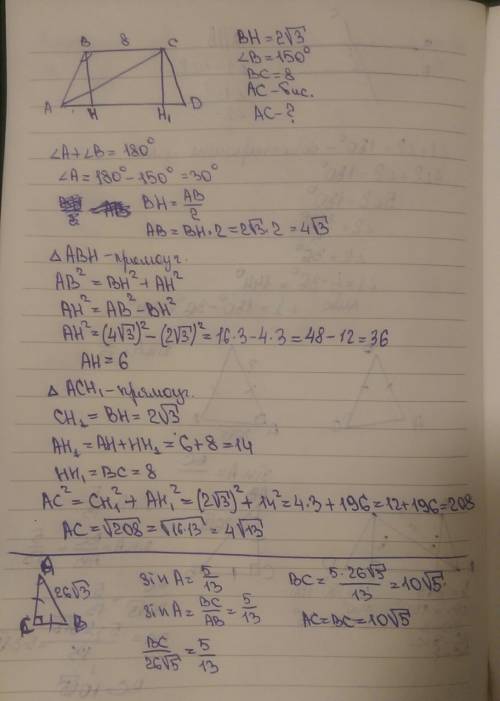 B 8 C
A H H₁ D
BH = 2√3
∠B = 150°
BC = 8
AC – бис.
AC – ?
∠A + ∠B = 180°
∠A = 180° – 150° = 30°
BH = AB/2
AB = BH · 2 = 2√3 · 2 = 4√3
△ ABH – прямоуг.
AB² = BH² + AH²
AH² = AB² – BH²
AH² = (4√3)² – (2√3)² = 16·3 – 4·3 = 48 – 12 = 36
AH = 6
△ ACH₁ – прямоуг.
CH₁ = BH = 2√3
AH₁ = AH + HH₁ = 6 + 8 = 14
HH₁ = BC = 8
AC² = CH₁² + AH₁² = (2√3)² + 14² = 4·3 + 196 = 12 + 196 = 208
AC = √208 = √16·13 = 4√13
A
26√3
C B
sin A = 5/13
sin A = BC/AB = 5/13
BC/26√5 = 5/13
BC = 5·26√5/13 = 10√5
AC = BC = 10√5